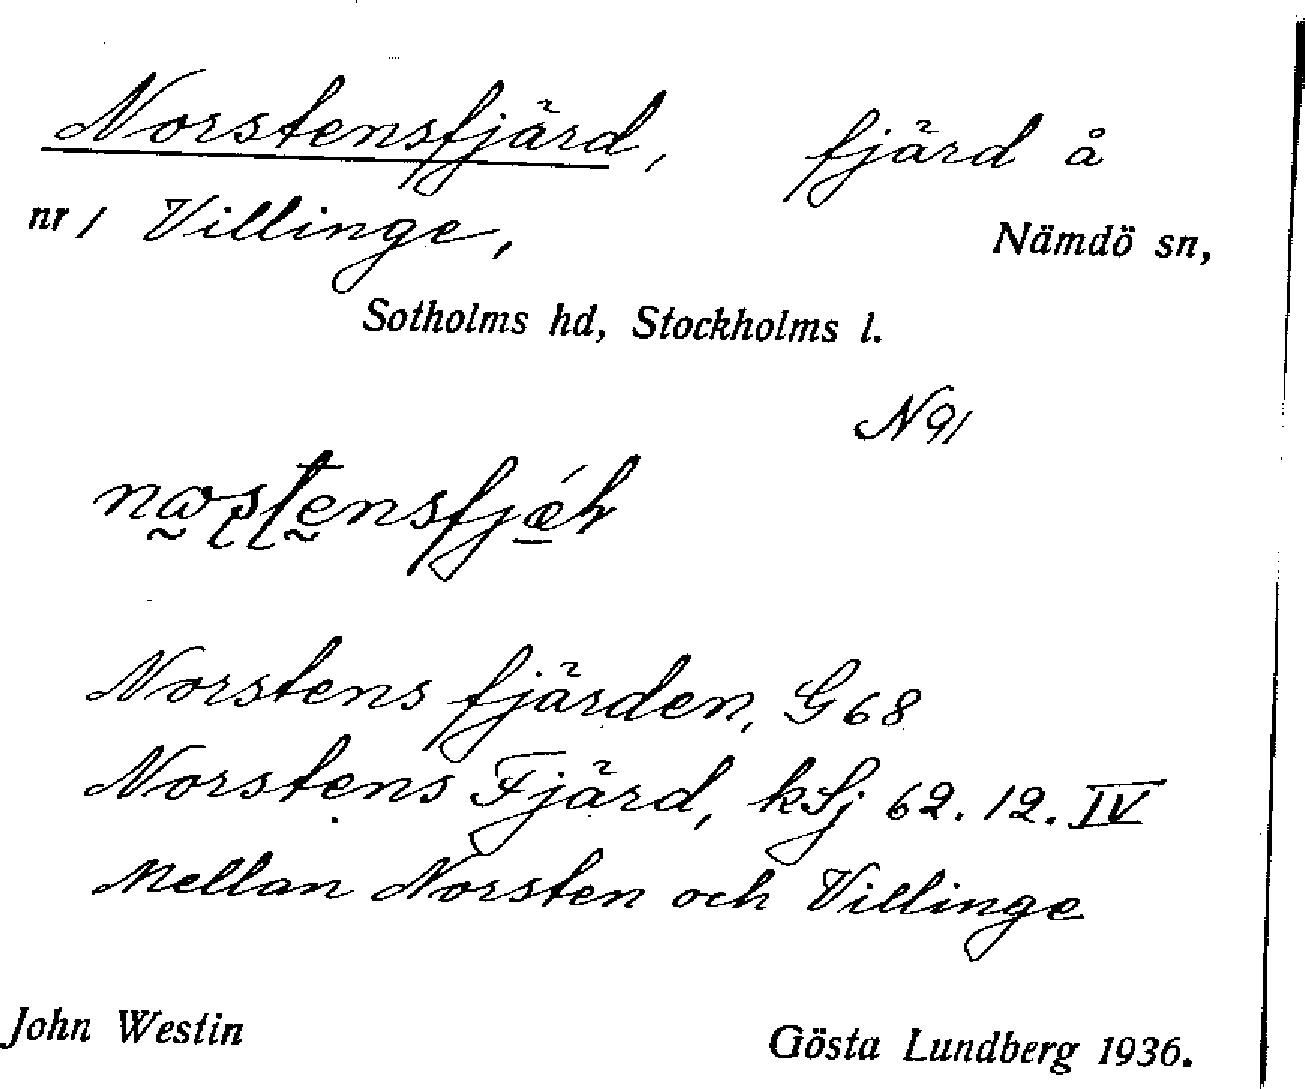 Norstensfjärd, fjärd å
nr 1 Villinge, Nämdö sn,
Sotholms hd, Stockholms l.
N 91
Norstens fjärden, G 68
Norstens Fjärd, kSj 62. 12. IV
Mellan Norsten och Villinge
John Westin Gösta Lundberg 1936.